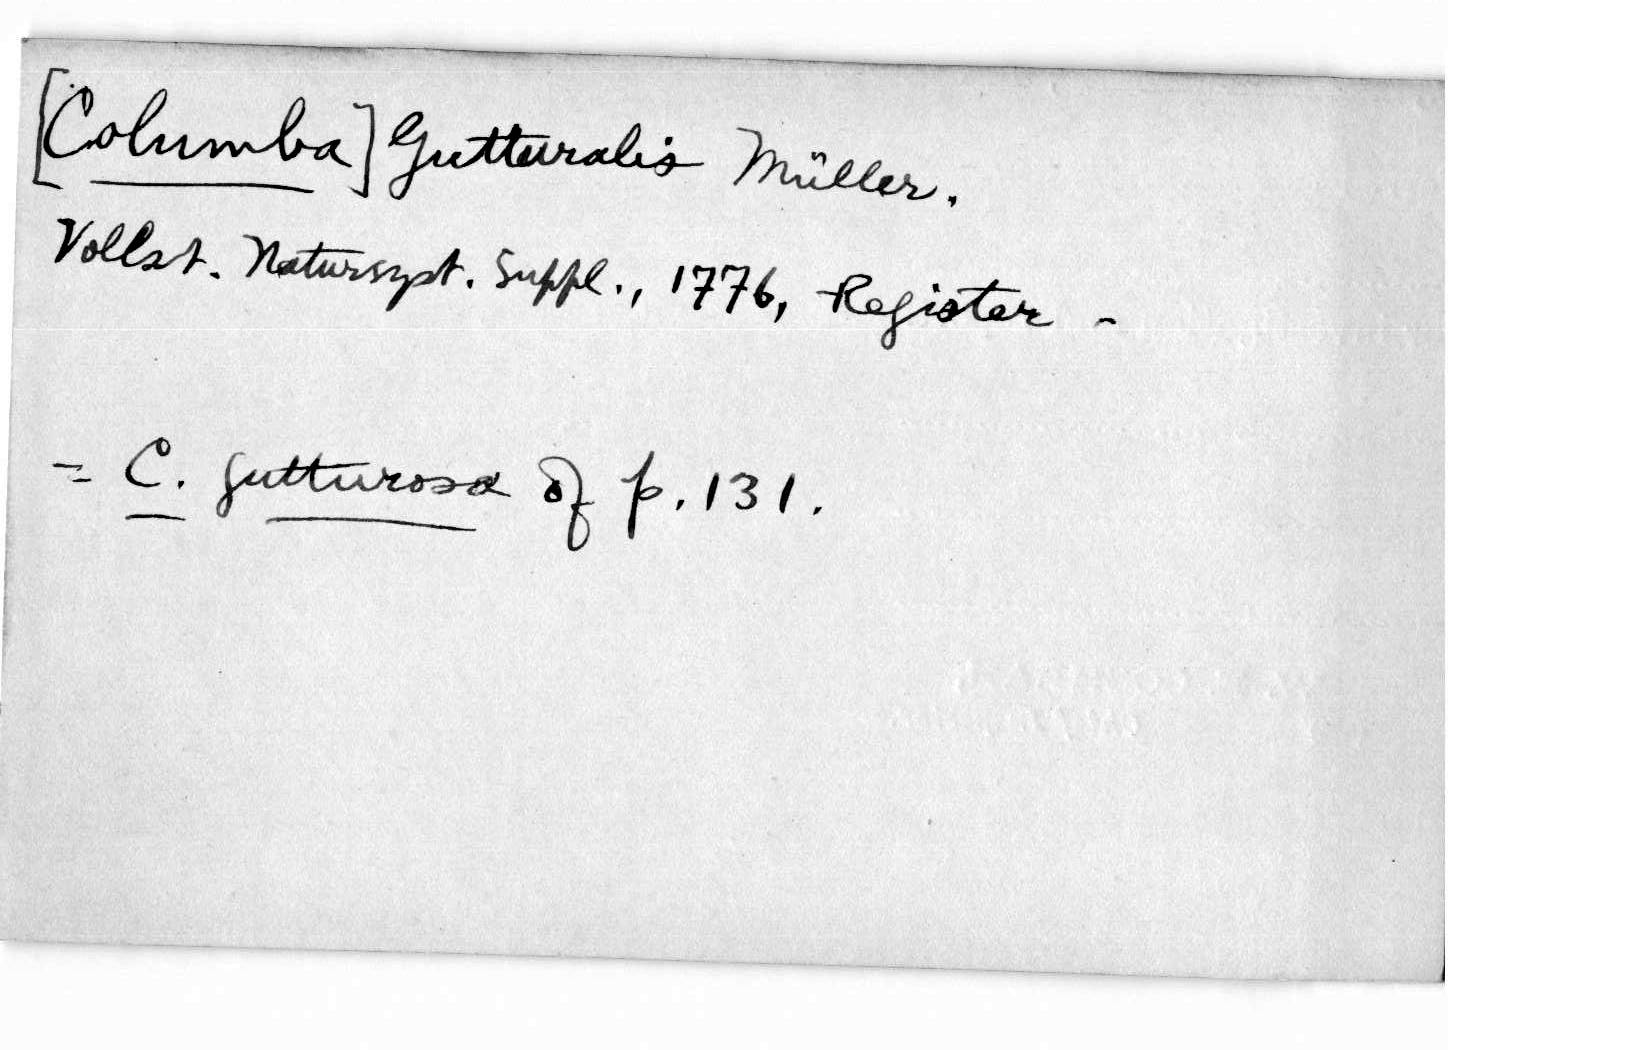 [Columba] Gutturalis Müller.
Vollst. Natursyst. Suppl., 1776, Register -
= C. gutturosa of p. 131.